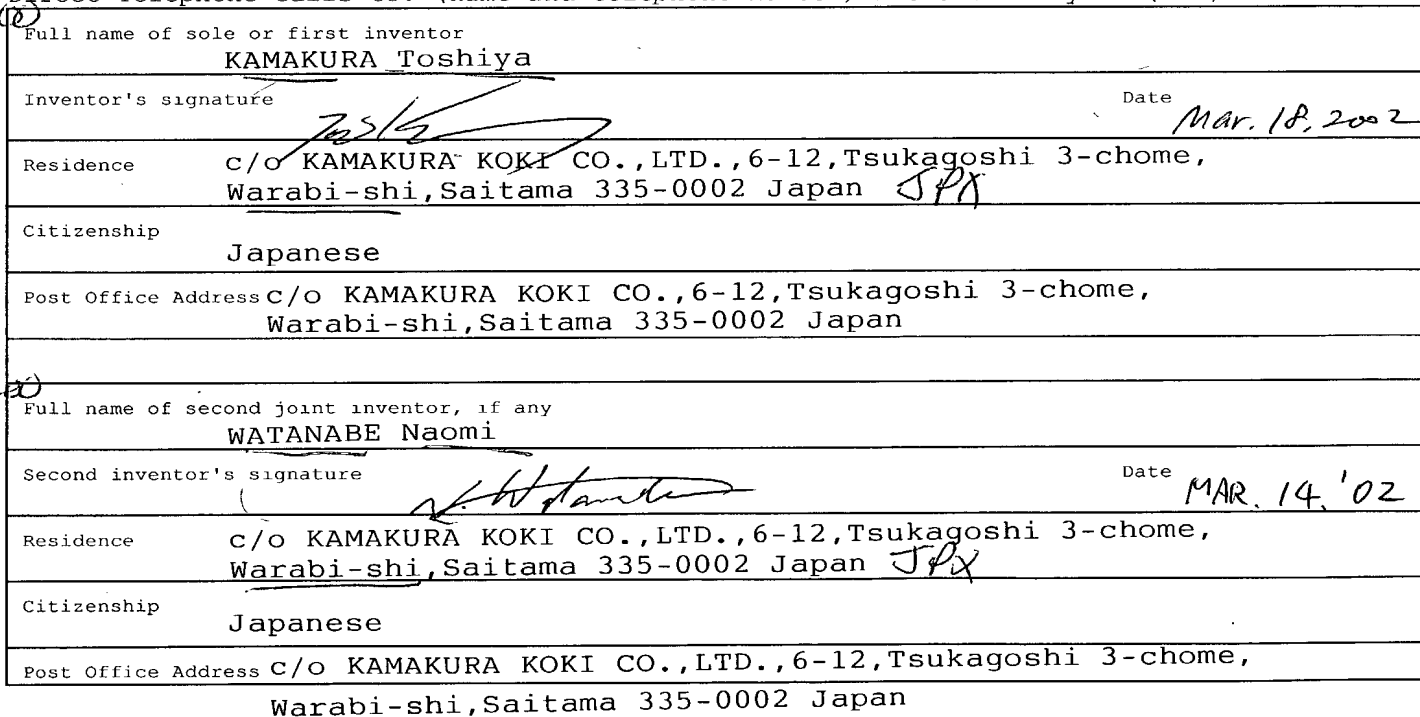 Full name of sole or first inventor
KAMAKURA Toshiya
Inventor's signature Date Mar. 18, 2002
Residence c/o KAMAKURA KOKI CO.,LTD.,6-12,Tsukagoshi 3-chome,
Warabi-shi,Saitama 335-0002 Japan JPX
Citizenship
Japanese
Post Office Address C/O KAMAKURA KOKI CO.,6-12,Tsukagoshi 3-chome,
Warabi-shi,Saitama 335-0002 Japan
Full name of second joint inventor, if any
WATANABE Naomi
Second inventor's signature N. Watanabe Date MAR. 14. '02
Residence c/o KAMAKURA KOKI CO.,LTD.,6-12,Tsukagoshi 3-chome,
Warabi-shi,Saitama 335-0002 Japan JPX
Citizenship
Japanese
Post Office Address C/O KAMAKURA KOKI CO.,LTD.,6-12,Tsukagoshi 3-chome,
Warabi-shi,Saitama 335-0002 Japan